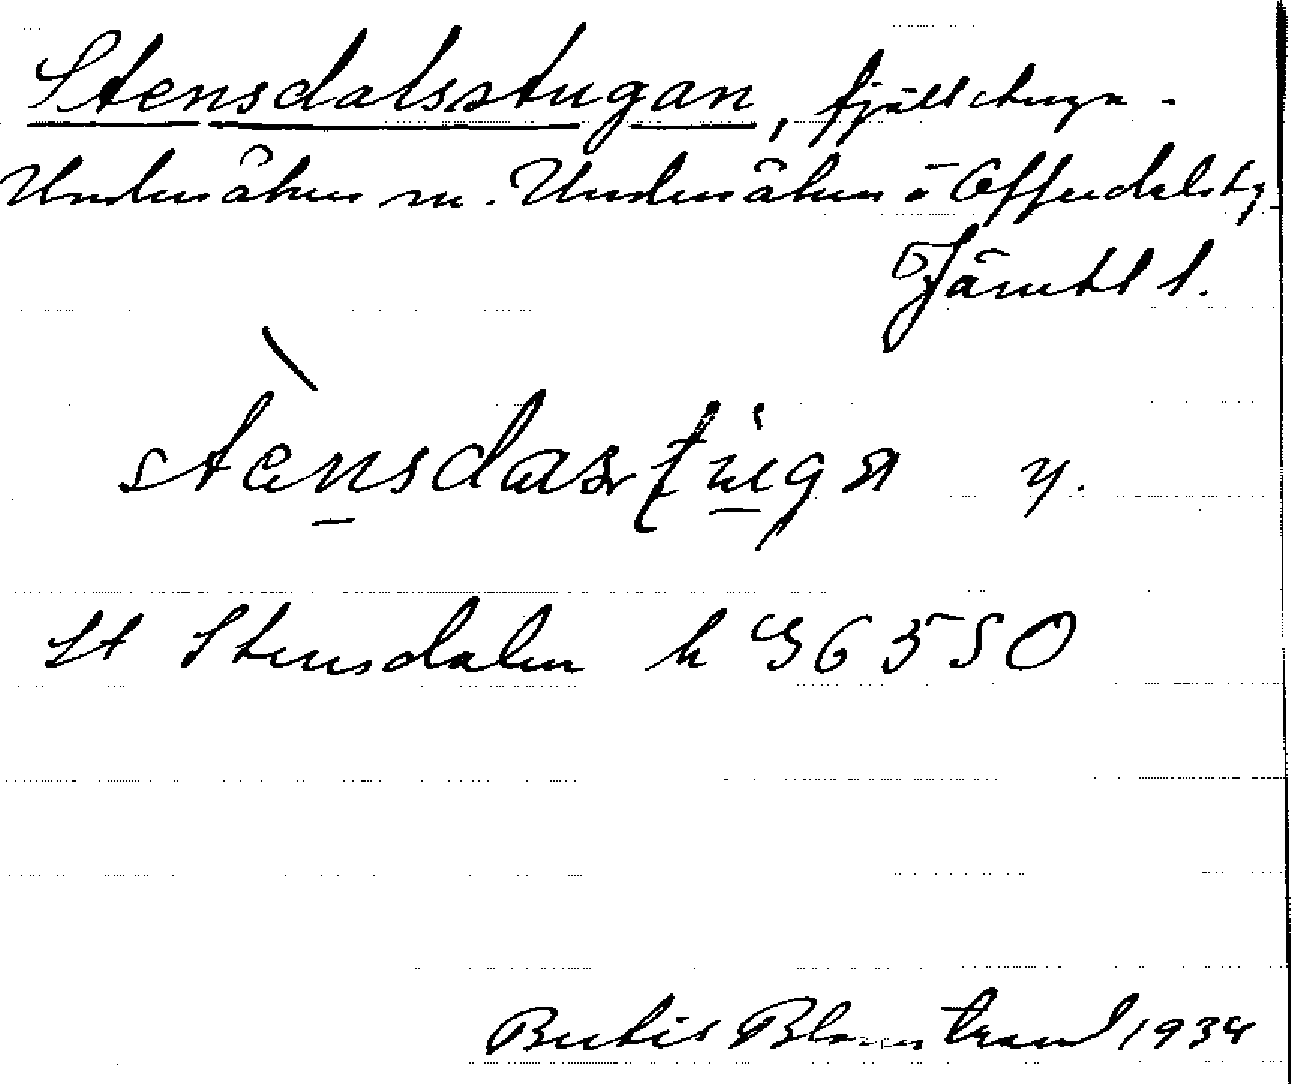 Stensdalsstugan, fjällstuga.
Undersåker sn. Undersåker o Offerdals tg.
Jämtl l.
stensdas
y.
St Stensdalen h 36550
Bertil Blomstrand 1934